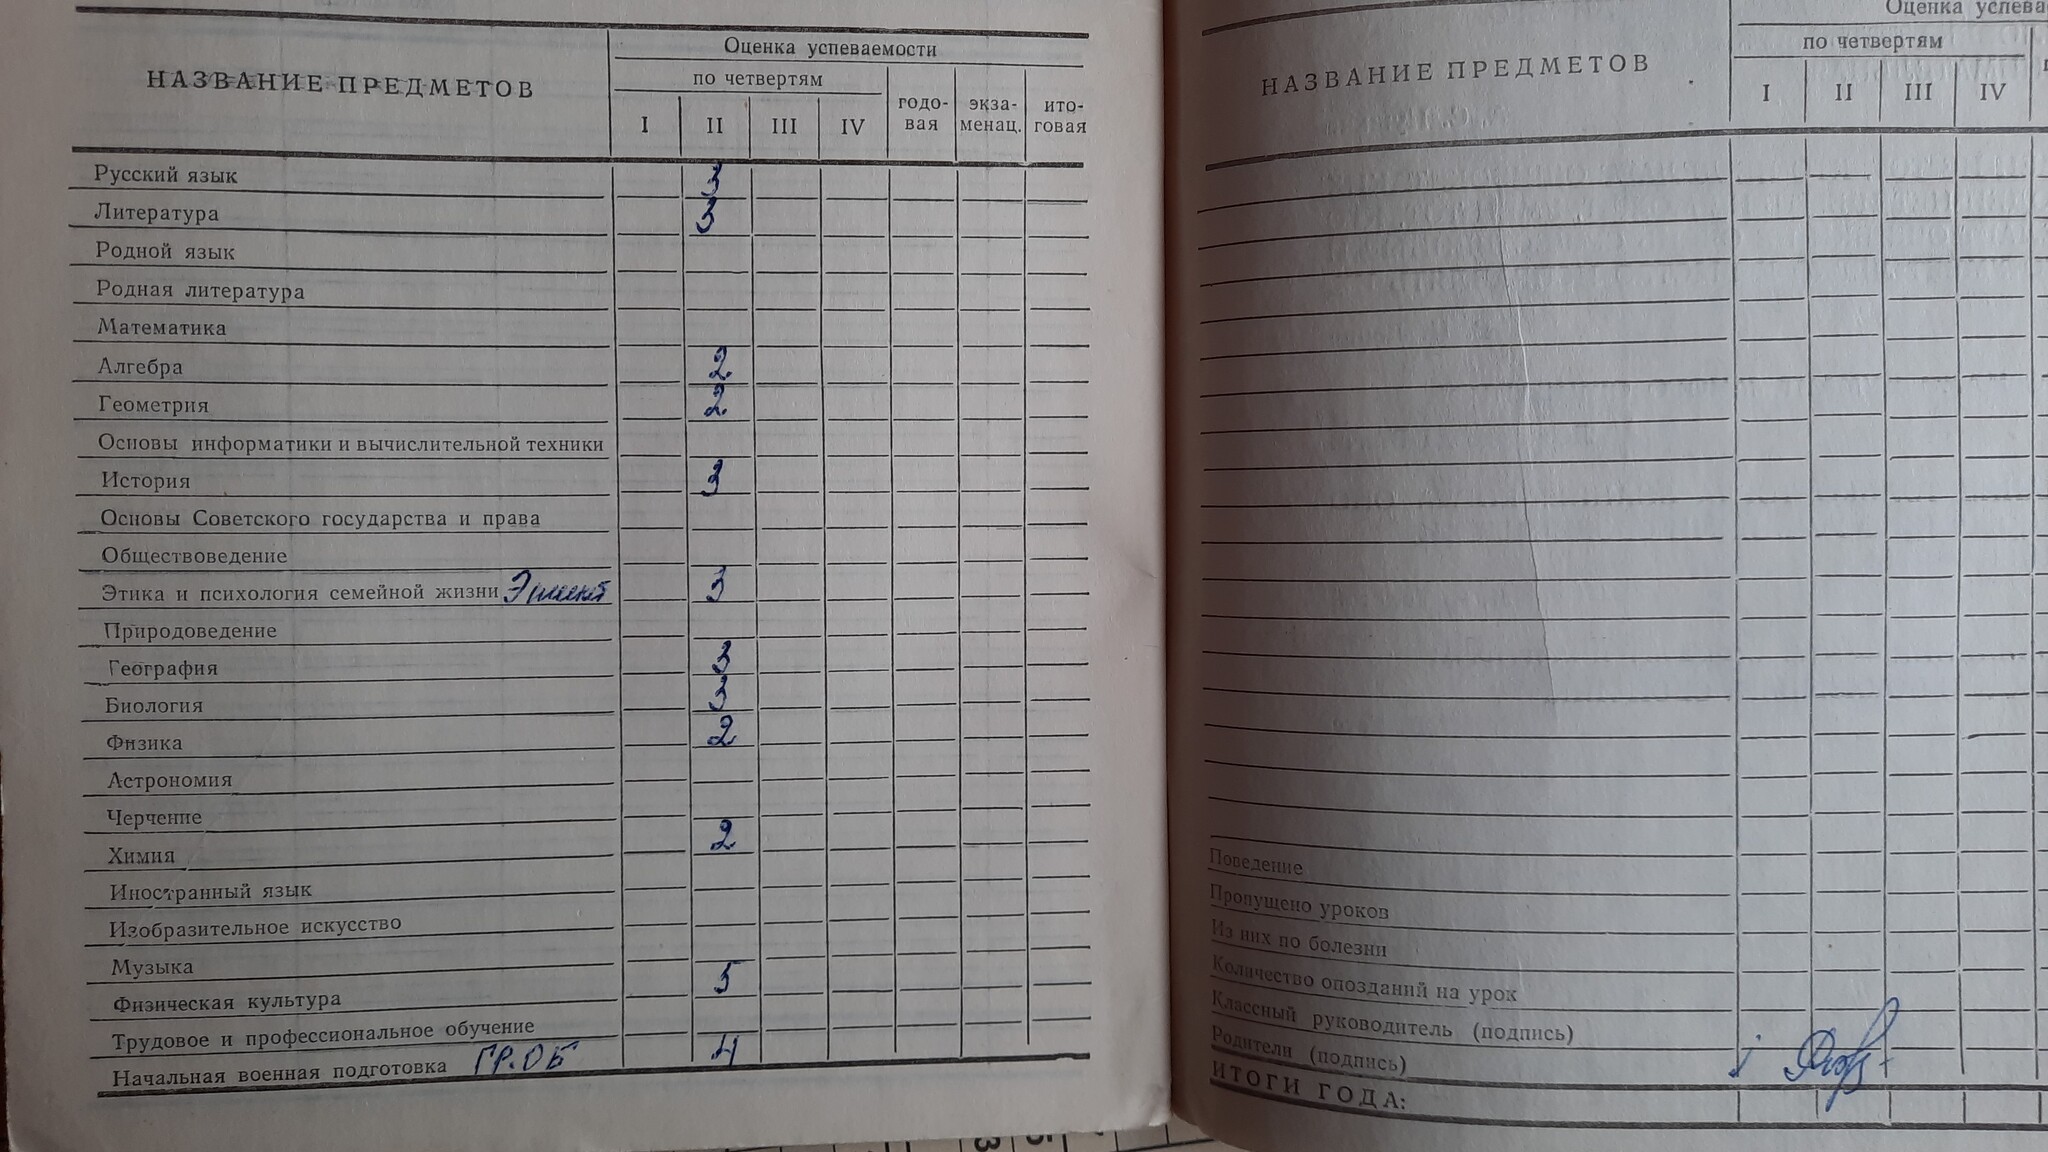 НАЗВАНИЕ ПРЕДМЕТОВ
Оценка успеваемости
по четвертям
I II III IV
годо-
вая
экза-
менац.
ито-
говая
Русский язык 3
Литература 3
Родной язык
Родная литература
Математика
Алгебра 2
Геометрия 2
Основы информатики и вычислительной техники
История 3
Основы Советского государства и права
Обществоведение
Этика и психология семейной жизни 3
Природоведение
География 3
Биология 3
Физика 2
Астрономия
Черчение
Химия 2
Иностранный язык
Изобразительное искусство
Музыка
Физическая культура 5
Трудовое и профессиональное обучение
Начальная военная подготовка ГР.ОБ 4
НАЗВАНИЕ ПРЕДМЕТОВ
Оценка успева
по четвертям
I II III IV
Поведение
Пропущено уроков
Из них по болезни
Количество опозданий на урок
Классный руководитель (подпись)
Родители (подпись)
ИТОГИ ГОДА: